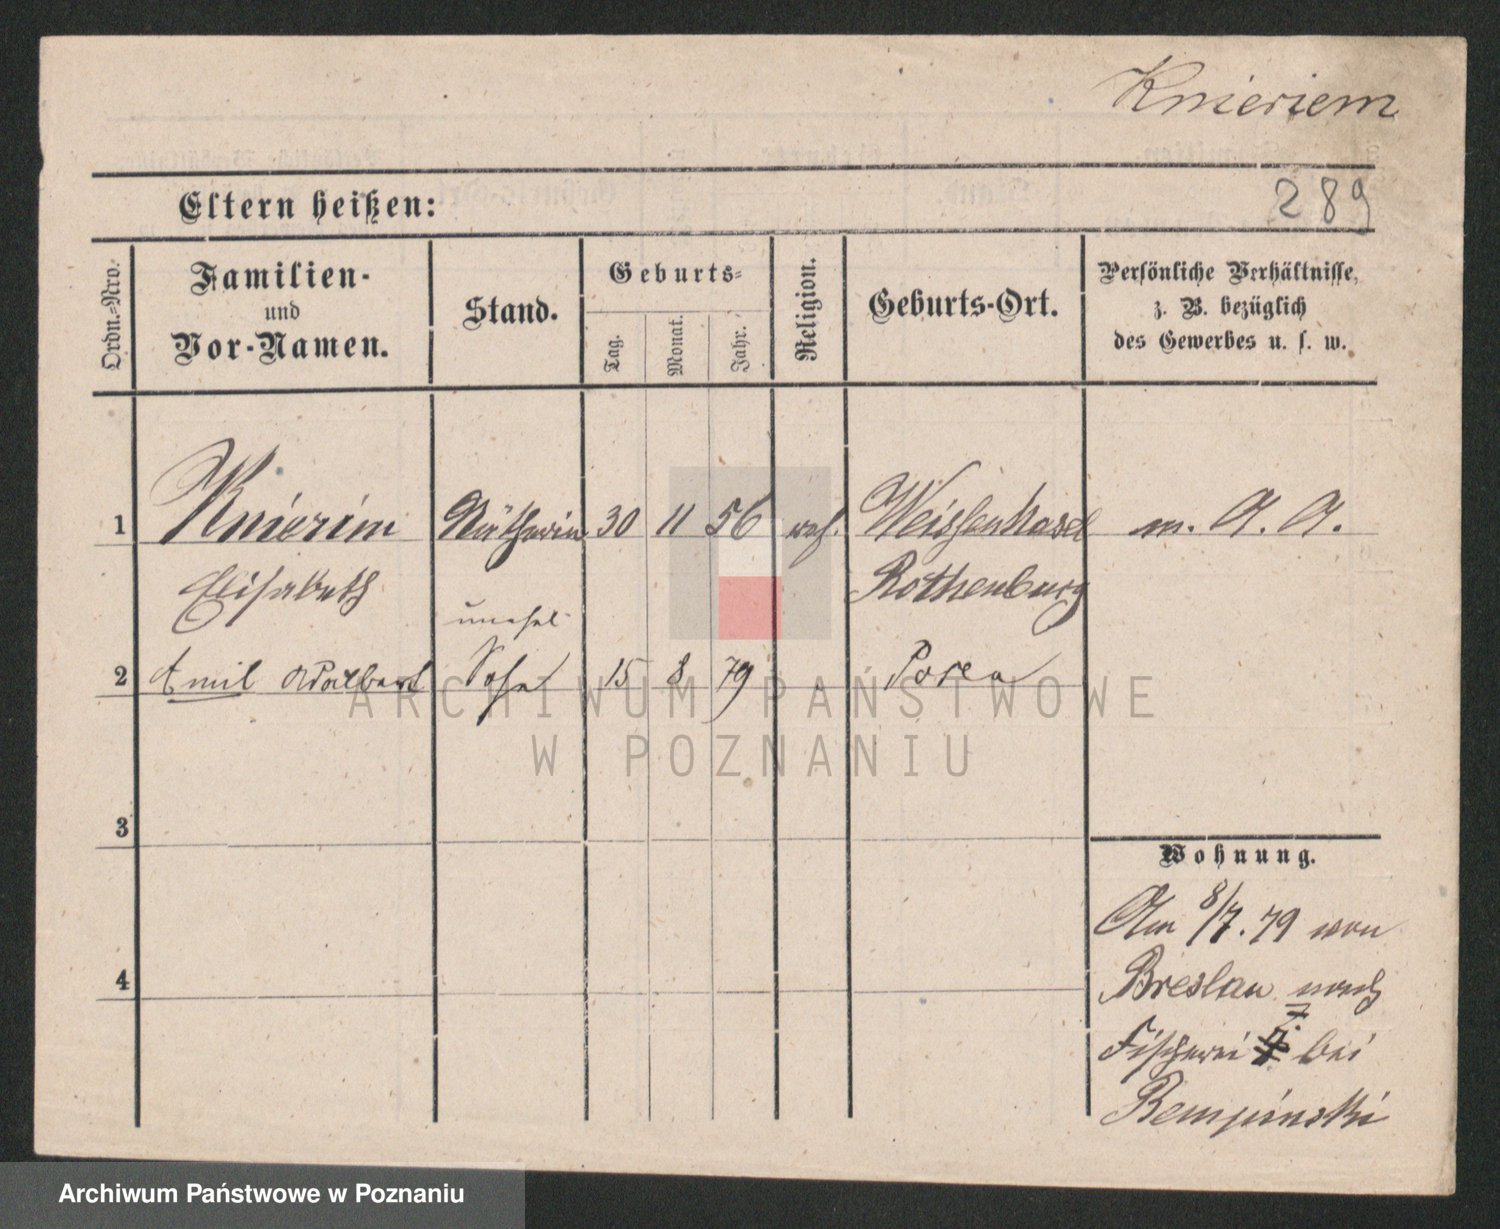 Knieriem
289
Eltern heißen:
Ordn.-Nro.
Familien-
und
Vor-Namen.
Stand.
Geburts-
Tag.
Monat.
Jahr.
Religion.
Geburts-Ort.
Persönliche Verhältnisse,
z. B. bezüglich
des Gewerbes u. s. w.
1 Knierim Nätherin 30 11 56 Weissenhasel m. A. A.
Elisabeth Rothenburg
unehel.
2 Emil Adalbert Sohn 15 8 79 Posen
3
4
Wohnung.
Am 8/7. 79 von
Breslau nach
7
Fischerei bei
Rempinski
ARCHIWUM PAŃSTWOWE
W POZNANIU
Archiwum Państwowe w Poznaniu